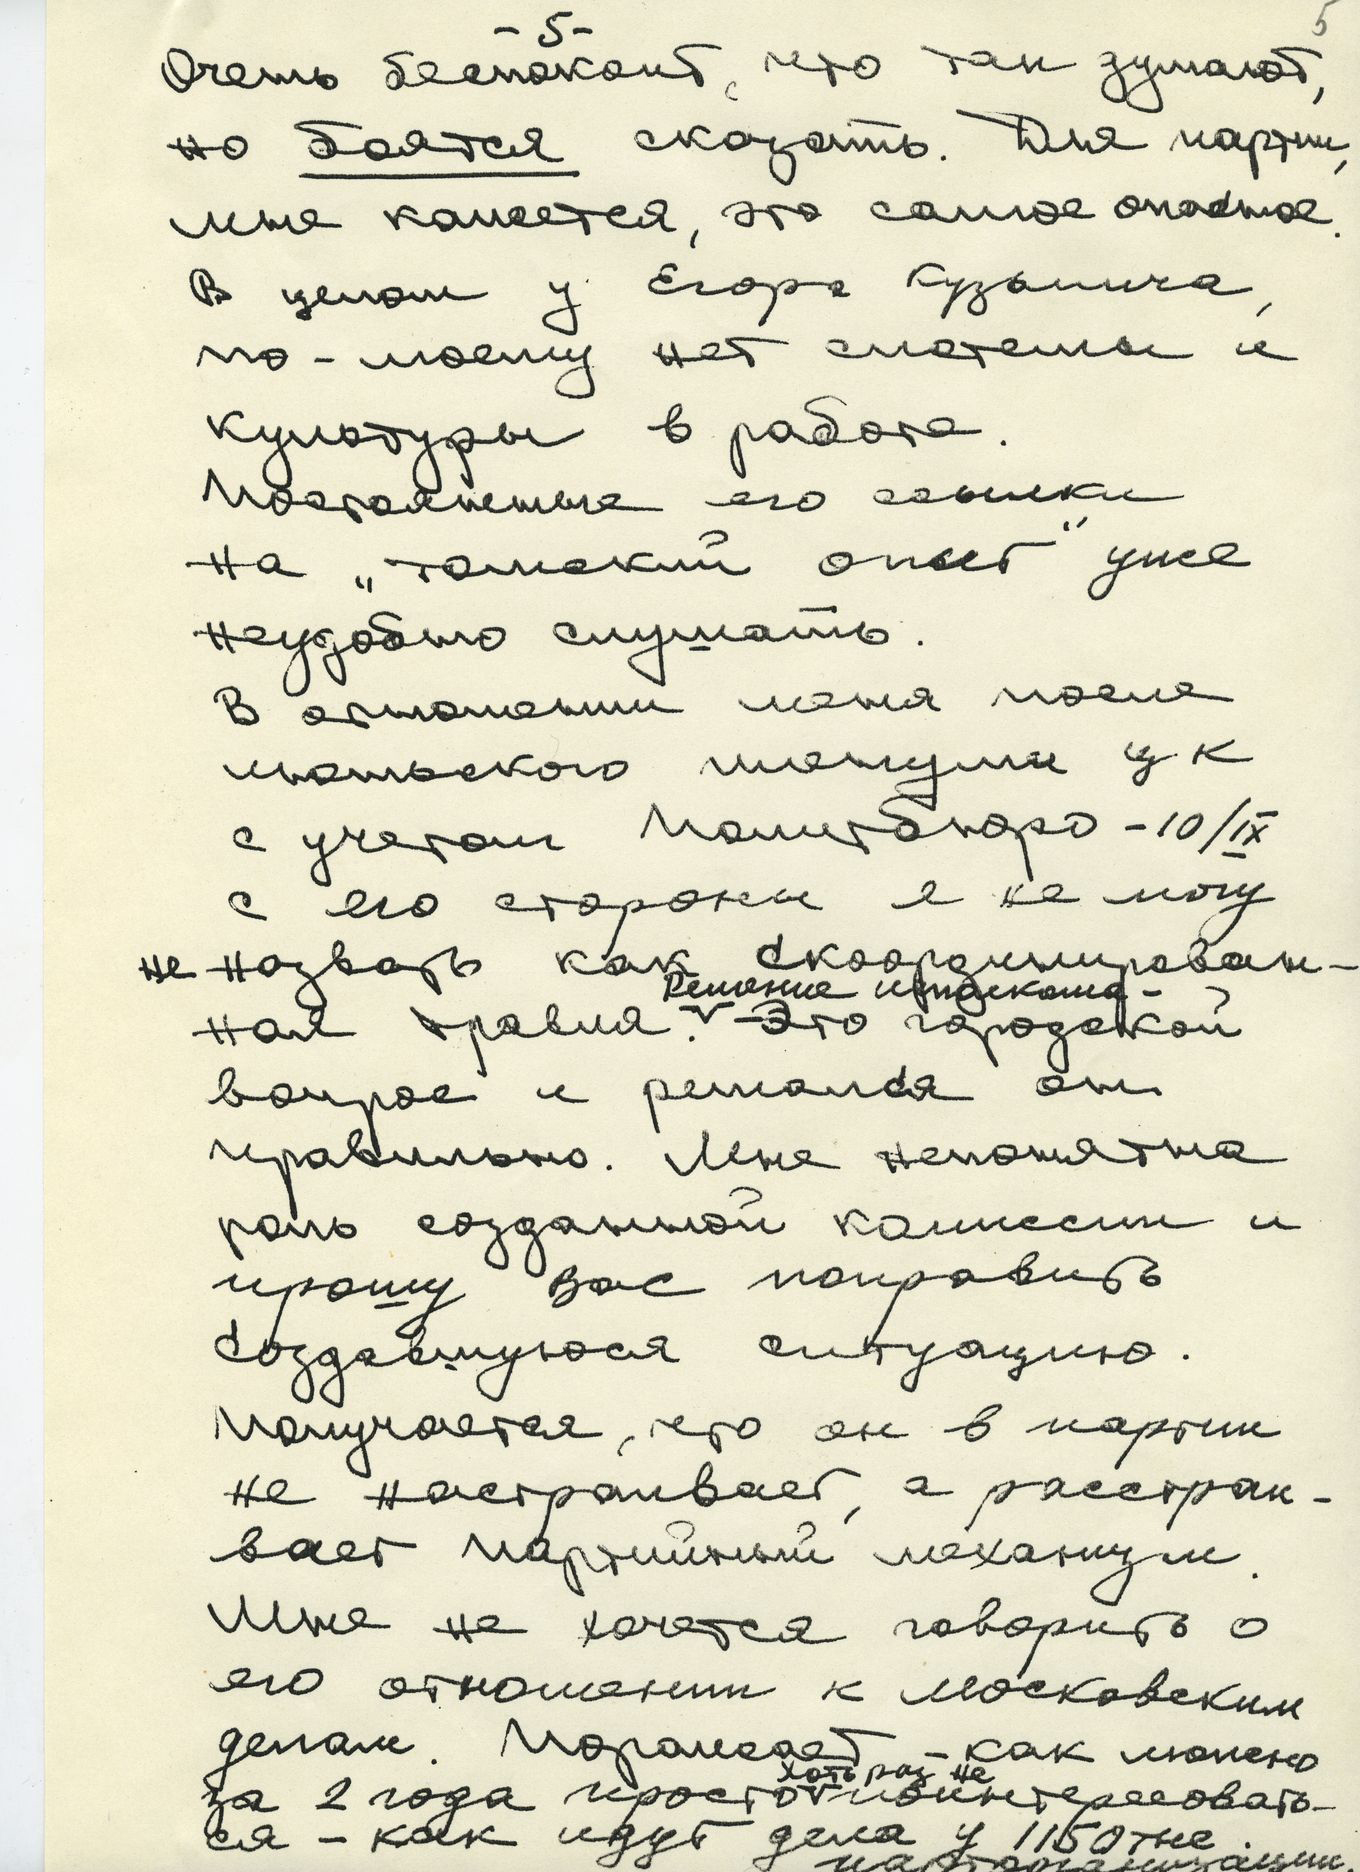 - 5 -
5
Очень беспокоит, что так думают,
но боятся сказать. Для партии,
мне кажется, это самое опасное.
В целом у Егора Кузьмича,
по-моему нет системы и
культуры в работе.
Постоянные его ссылки
на „томский опыт" уже
неудобно слушать.
В отношении меня после
июньского пленума ЦК
с учетом Политбюро - 10/IX
с его стороны я не могу
не назвать как скоординирован-
Решение исполкома -
ная травля. Это городской
вопрос и решался он
правильно. Мне непонятна
роль созданной комиссии и
прошу Вас поправить
создавшуюся ситуацию.
Получается, что он в партии
не настраивает, а расстраи-
вает партийный механизм.
Мне не хочется говорить о
его отношении к московским
делам. Поражает - как можно
хоть раз не
за 2 года просто поинтересовать-
ся - как идут дела у 1150 тне.
парторганизации